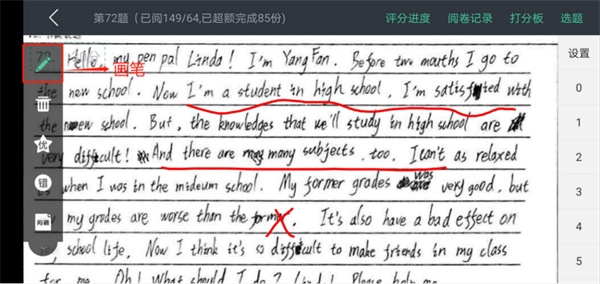 第72题（已阅149/64,已超额完成85份） 评分进度 阅卷记录 打分板 选题
72. Hello, my pen pal Linda! I'm Yang Fan. Before two mouths I go to
画笔
the new school. Now I'm a student in high school, I'm satisfied with
the new school. But, the knowledges that we'll study in high school are
very difficult! And there are many subjects, too. I can't as relaxed
when I was in the mideum school. My former grades was very good, but
my grades are worse than the former. It's also have a bad effect on
school life. Now I think it's so difficult to make friends in my class
for me. Oh! What should I do? Please help me
优
错
问题
设置
0
1
2
3
4
5